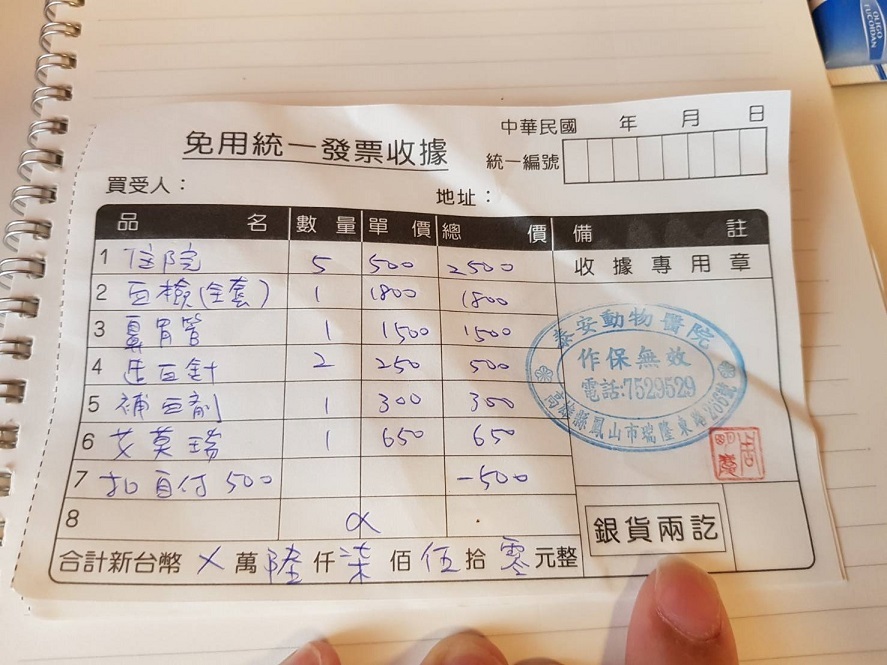 OLIGO
FUCOIDAN
中華民國 年 月 日
免用統一發票收據
統一編號
買受人：
地址：
品名 數量 單價 總價 備註
1 住院 5 500 2500
收據專用章
2 血檢(全套) 1 1800 1800
3 鼻胃管 1 1500 1500
4 造血針 2 250 500
5 補血劑 1 300 300
6 艾莫瑞 1 650 650
7 扣自付500 -500
8
泰安動物醫院
作保無效
電話:7529529
高雄縣鳳山市瑞隆東路266號
銀貨兩訖
合計新台幣 X 萬 陸 仟 柒 佰 伍 拾 零 元整